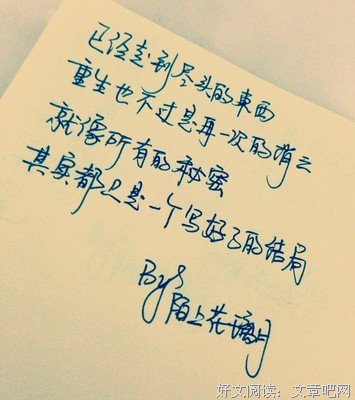 已经走到尽头的東西
重生也不过是再一次的消亡
就像所有的秘密
其实都只是一个写好了的结局
By
陌上花璃月
好文阅读：文章吧网